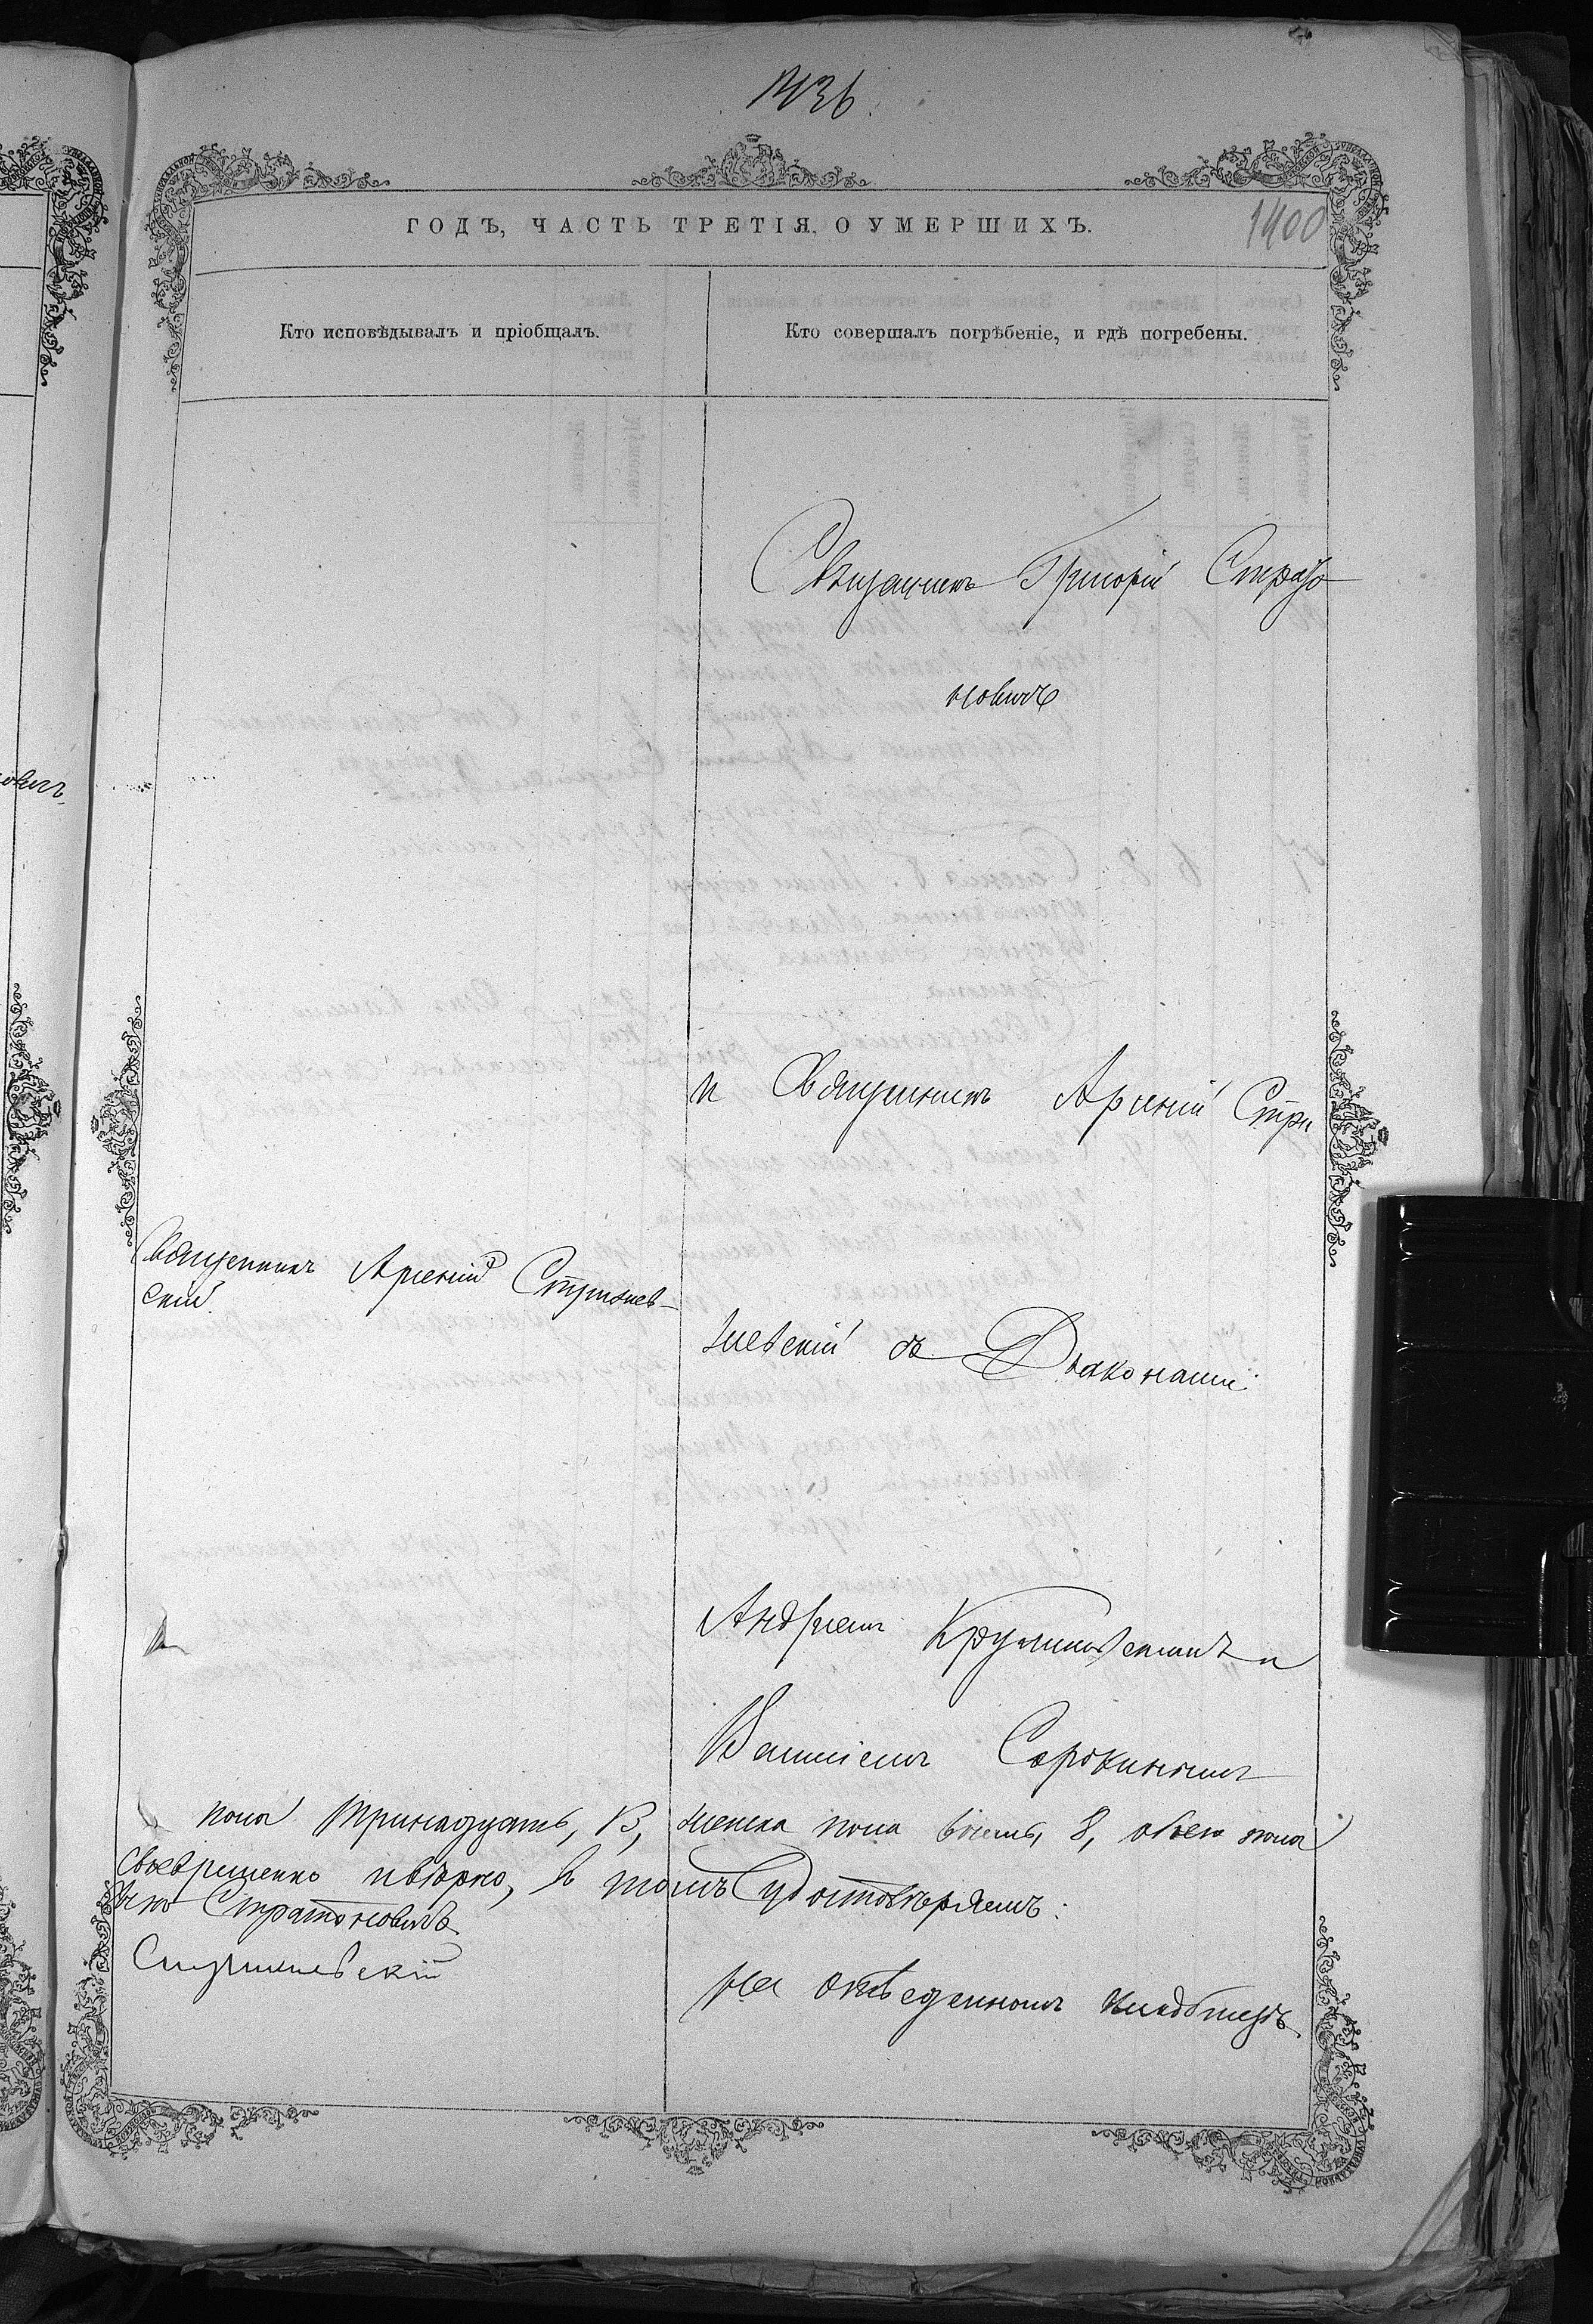 1436.
ГОДЪ, ЧАСТЬ ТРЕТІЯ, О УМЕРШИХЪ.
1400
Кто исповѣдывалъ и пріобщалъ.
Кто совершалъ погрѣбеніе, и гдѣ погребены.
Священникъ Григорій Страто
новичъ
и Священникъ Арсеній Стри
Священникъ Арсеній Стрижев-
скій.
жевскій съ Діаконами:
Андреемъ и
Василіемъ Сорокинымъ
пола тринадцать, 13, женска пола восемь, 8, обоего пола
и вѣрно, въ томъ удостовѣряемъ:
Стратоновичъ
Стрижевскій
На отведенномъ кладбищѣ